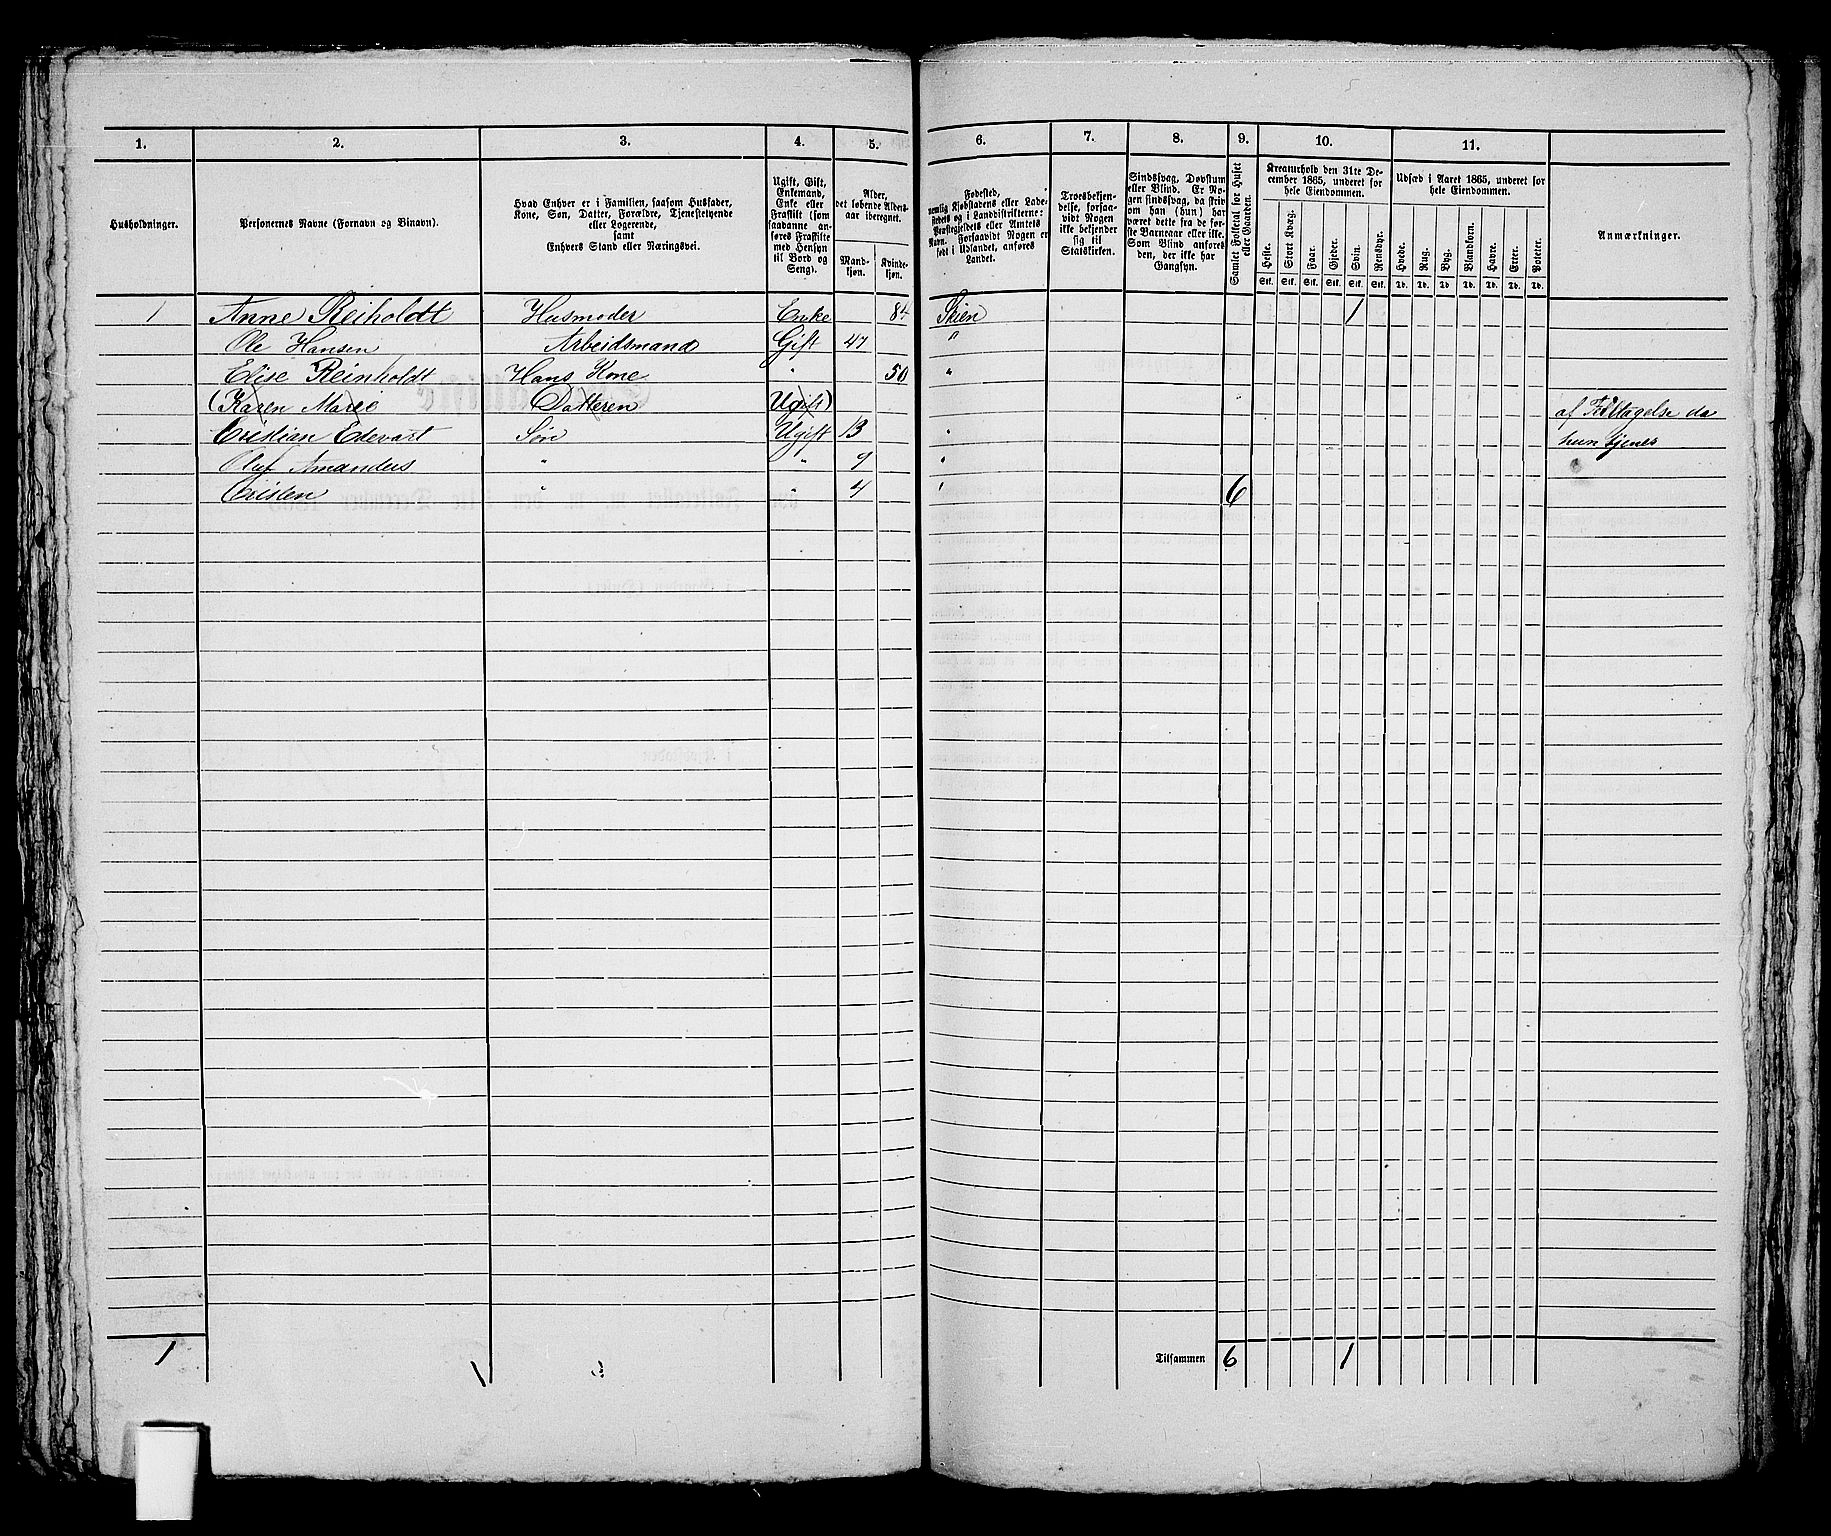 5
1. 2. 3. 4. 5. 6. 7. 8. 9. 10. 11.
Husholdninger.
Personernes Navne (Fornavn og Binavn).
Hvad Enhver er i Familien, saasom Husfader,
Kone, Søn, Datter, Forældre, Tjenestetyende
eller Logerende,
samt
Enhvers Stand eller Næringsvei.
Ugift, Gift,
Enkemand,
Enke eller
Fraskilt (som
saadanne an-
føres Fraskilte
med Hensyn
til Bord og
Seng).
Alder,
det løbende Alders-
aar iberegnet.
Mand-
kjøn.
Kvinde-
kjøn.
Fødested,
nemlig Kjøbstadens eller Lade-
stedets og i Landdistrikterne:
Præstegjeldets eller Amtets
Navn. Forsaavidt Nogen er
født i Udlandet, anføres
Landet.
Troesbekjen-
delse, forsaa-
vidt Nogen
ikke bekjender
sig til
Statskirken.
Sindssvag, Døvstum
eller Blind. Er No-
gen sindssvag, da skriv
om han (hun) har
været dette fra de før-
ste Barneaar eller ikke.
Som Blind anføres
den, der ikke har
Gangsyn.
Samlet Folketal for Huset
eller Gaarden.
Kreaturhold den 31te De-
cember 1865, underet for
hele Eiendommen.
Heste. Stort Kvæg. Faar. Gjeder. Svin. Rensdyr.
Stk. Stk. Stk. Stk. Stk. Stk.
Udsæd i Aaret 1865, underet for
hele Eiendommen.
Hvede. Rug. Byg. Blandkorn. Havre. Erter. Poteter.
Td. Td. Td. Td. Td. Td. Td.
Anmærkninger.
1 Anne Reiholdt Husmoder Enke 84 Skien 1
Ole Hansen Arbeidsmand Gift 47 "
Elise Reinholdt Hans Kone " 50 "
(Karen Marie Datteren Ugift) af Fødtagelse da
Cristian Edevart Søn Ugift 13 " hun tjener
Oluf Amandus " " 9 "
Cristen " " 4 " 6
1
Tilsammen 6 1